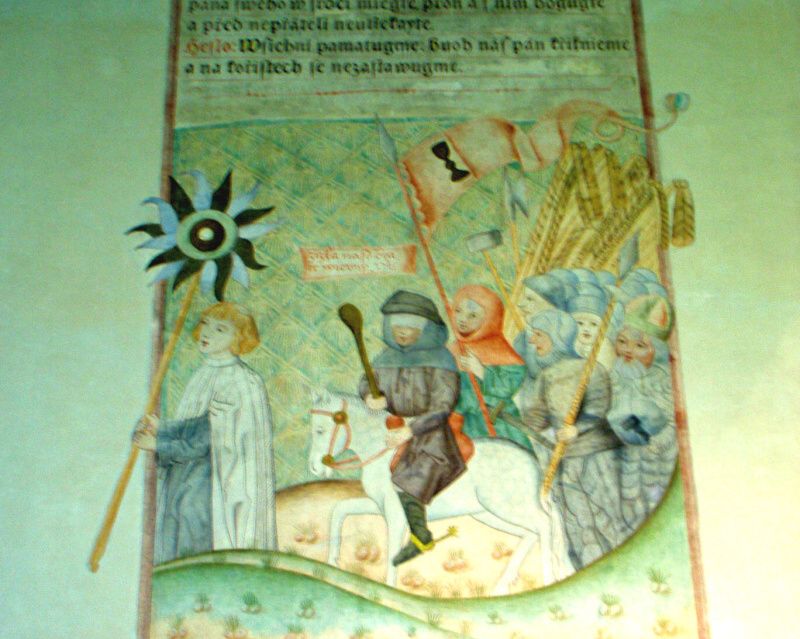 pána swého w srdci miegte, proň a s ním bogugte
a před nepřáteli neutiekayte.
Heslo: Wšichni pamatugme. Buoh náš pán křikniemе
a na kořistech se nezastawugme.